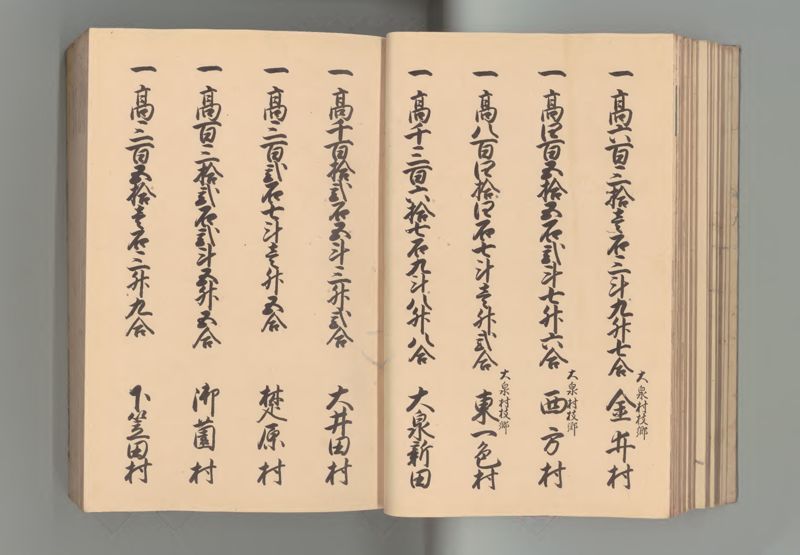 一高六百三拾壱石三斗九升七合 大泉村枝郷 金井村
一高四百五拾五石弐斗七升六合 大泉村枝郷 西方村
一高八百四拾四石七斗壱升弐合 大泉村枝郷 東一色村
一高千三百六拾七石九斗八升八合 大泉新田
一高千百拾弐石五斗三升弐合 大井田村
一高三百弐石七斗壱升五合 楚原村
一高百三拾弐石弐斗五升五合 御薗村
一高三百五拾壱石三升九合 下笠田村